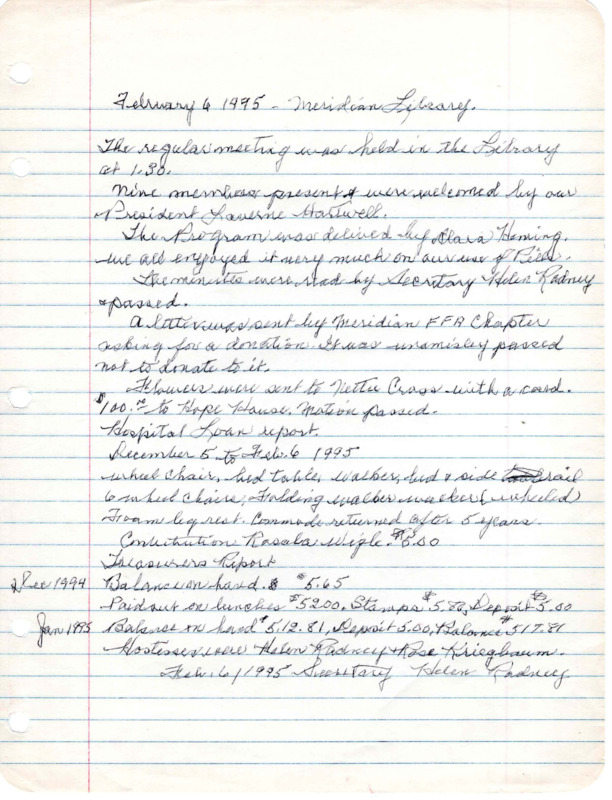 February 6 1995 - Meridian Library.
The regular meeting was held in the Library
at 1.30.
Nine members present & were welcomed by our
President Laverne Hartwell.
The Program was delived by Clara Heming.
we all enjoyed it very much on our use of Pills.
The minutes were read by Secretary Helen Radney
& passed.
A letter was sent by Meridian FFA Chapter
asking for a donation. It was unamisley passed
not to donate to it.
Flowers were sent to Nettie Cross with a card.
$100.00 to Hope House. Motion passed.
Hospital Loan report.
December 5 to Feb. 6 1995
wheel chair, bed table, walker, bed & side rail
6 wheel chairs, Folding walker walker (wheeled)
Foam leg rest. Commode returned after 5 years.
Contribution Rosala Wigle. $5.00
Treasurers Report
Dec 1994 Balance on hand. $5.65
Paid out on lunches $5200, Stamps $5.80, Deposit $5.00
Jan 1995 Balance on hand $5,12.81, Deposit 5.00, Balance $517.81
Hostesses were Helen Radney & Rose Kriegbaum.
Feb. 6/1995 Secretary Helen Radney